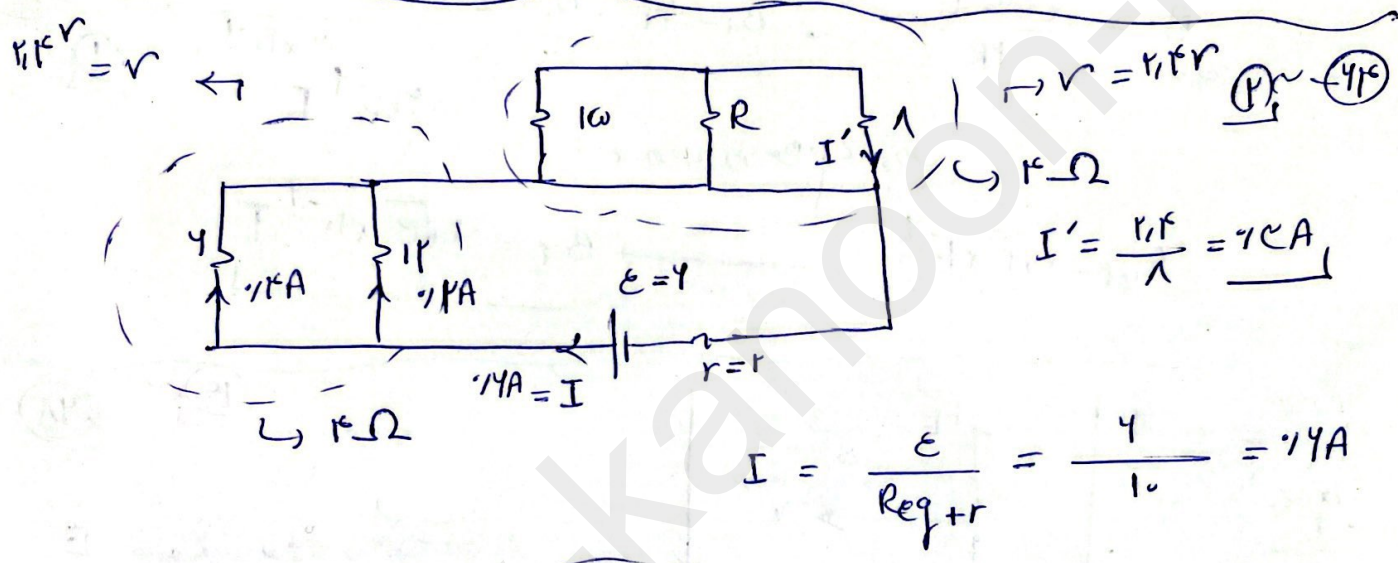 ۲,۴ v = v ←
→ v = ۲,۴ v ۲ ~ ۶۴
۱۵ R I' ۸
↳ ۴Ω
I' = ۲,۴ / ۸ = ۰/۳A
۶ ۰/۴A ۱۲ ۰/۲A
ε = ۶
۰/۶A = I r = ۲
↳ ۴Ω
I = ε / Req + r = ۶ / ۱۰ = ۰/۶A
kanoon